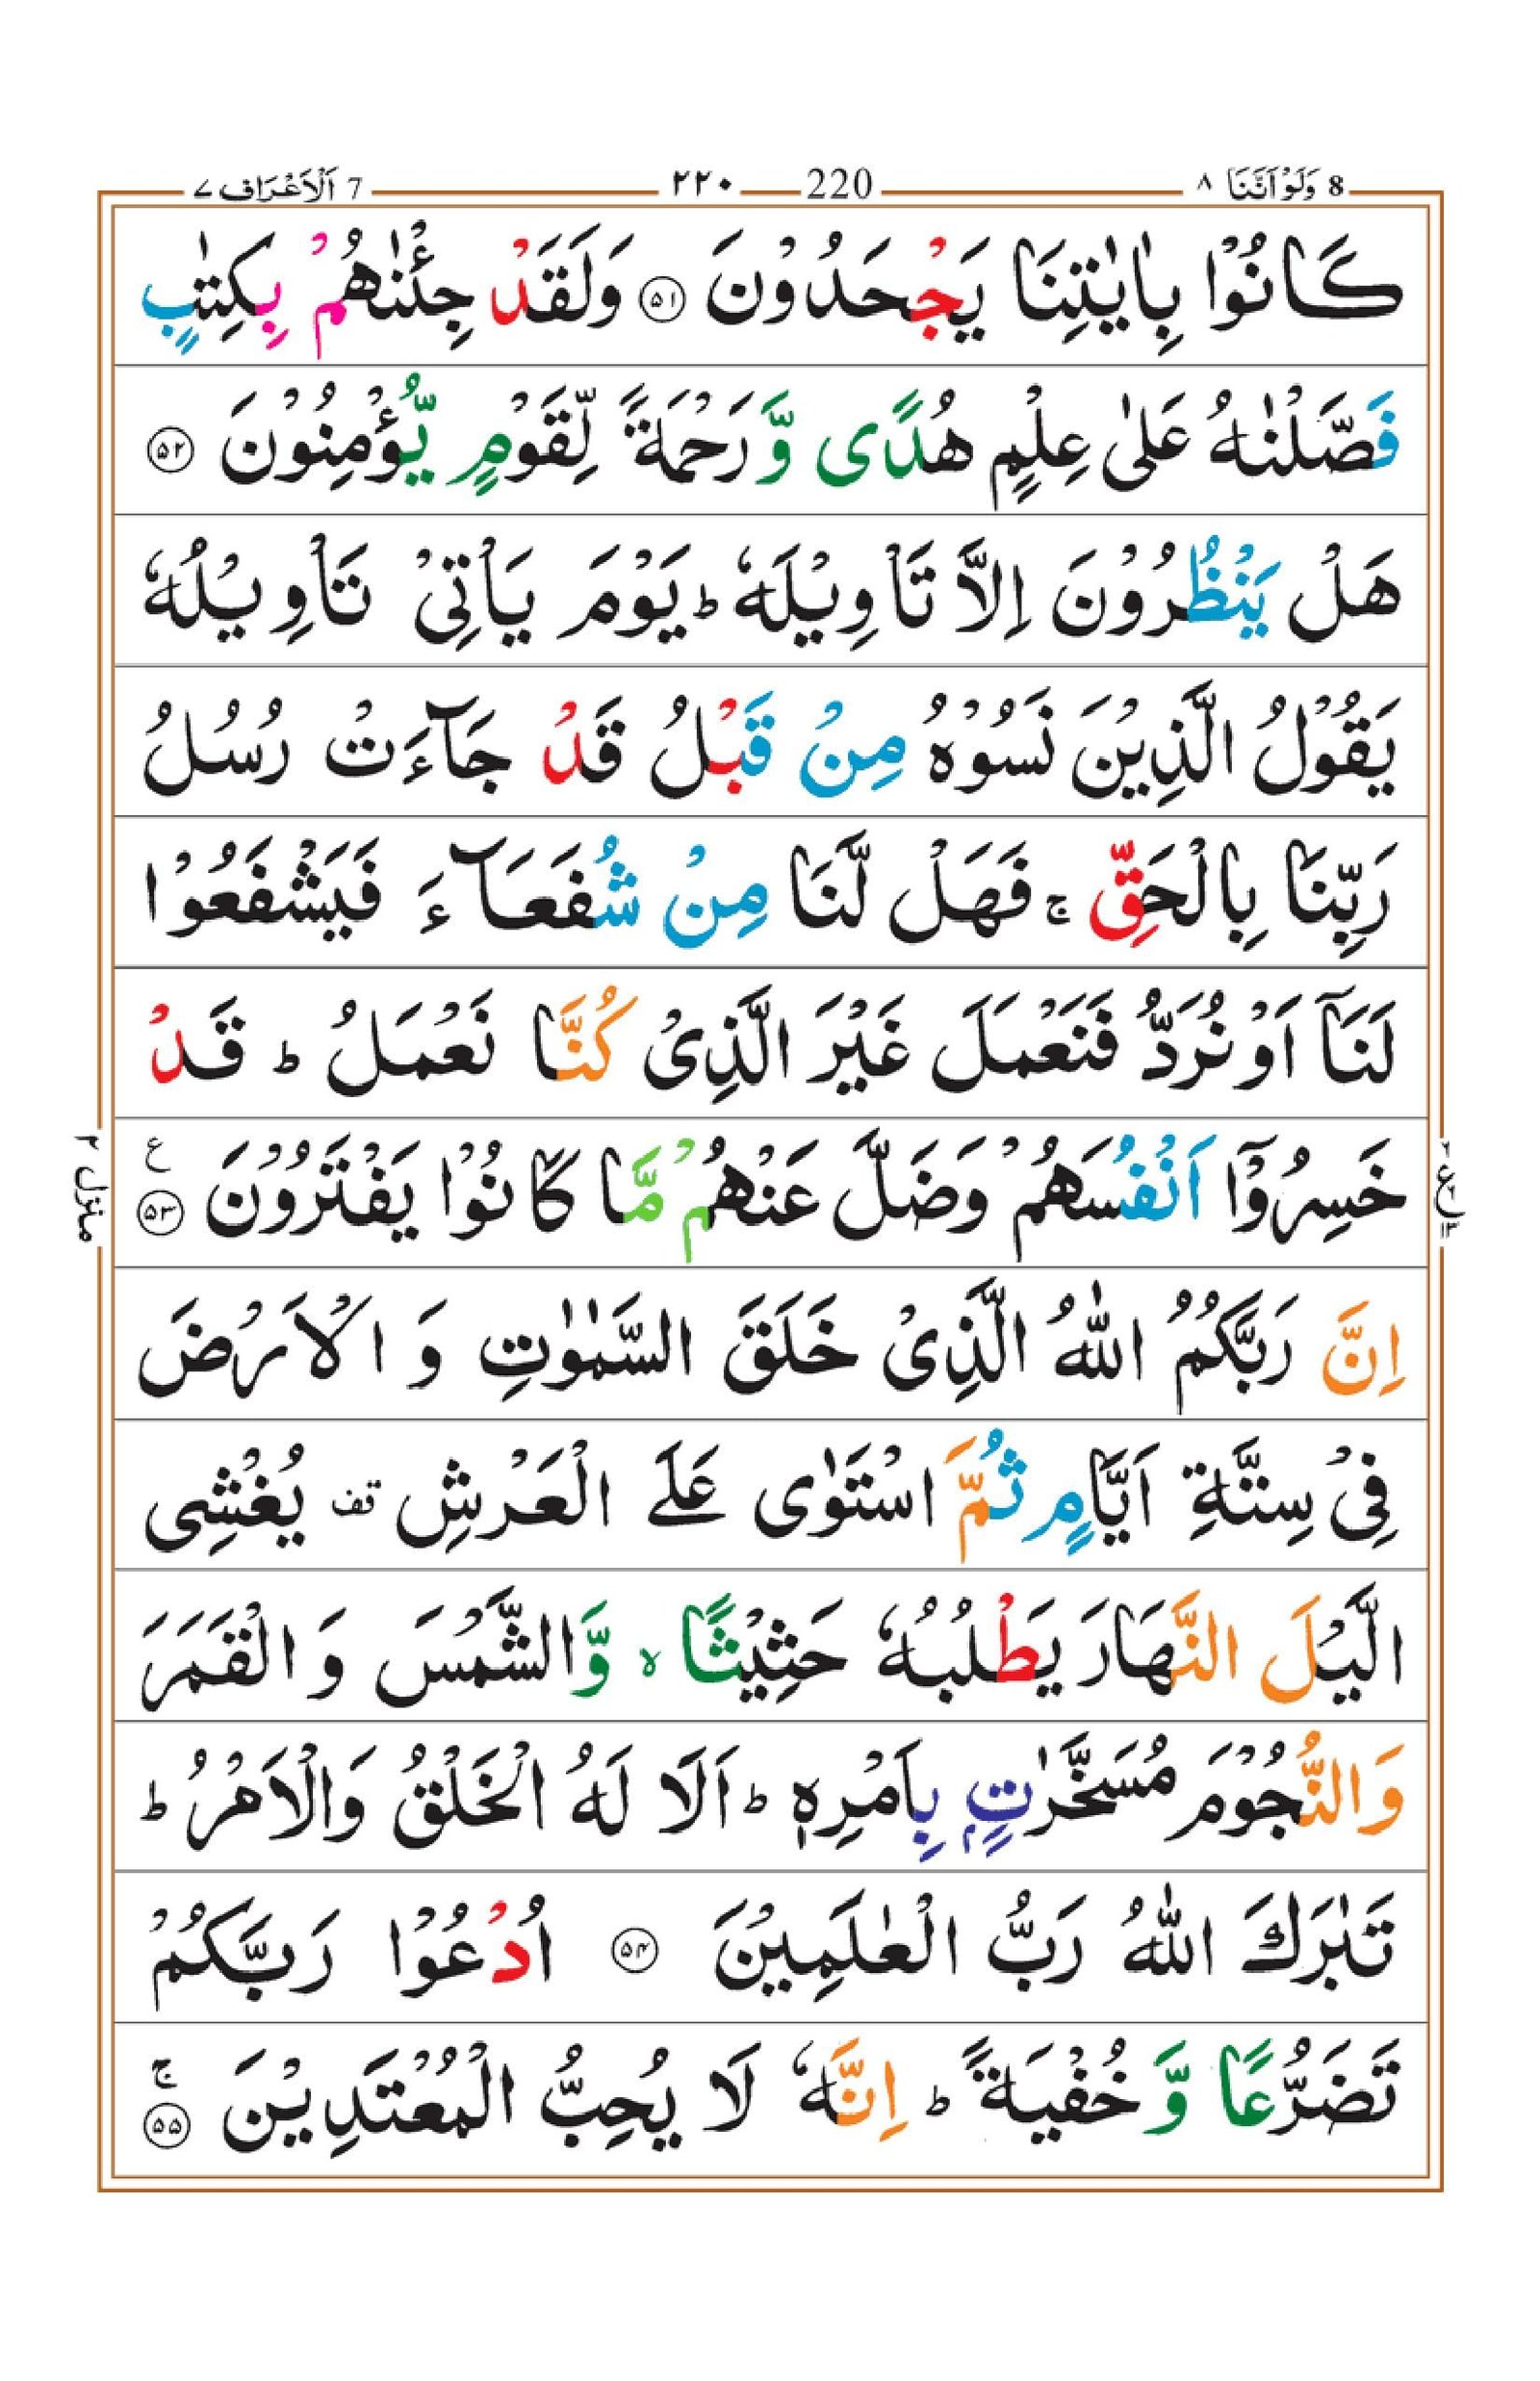 8 وَلَوْ اَنَّنَا ۸ 220 ۲۲۰ 7 اَلْاَعْرَاف ۷
كَانُوْا بِاٰيٰتِنَا يَجْحَدُوْنَ ۵۱ وَلَقَدْ جِئْنٰهُمْ بِكِتٰبٍ
فَصَّلْنٰهُ عَلٰى عِلْمٍ هُدًى وَّرَحْمَةً لِّقَوْمٍ يُّؤْمِنُوْنَ ۵۲
هَلْ يَنْظُرُوْنَ اِلَّا تَاْوِيْلَهٗ ؕ يَوْمَ يَاْتِىْ تَاْوِيْلُهٗ
يَقُوْلُ الَّذِيْنَ نَسُوْهُ مِنْ قَبْلُ قَدْ جَآءَتْ رُسُلُ
رَبِّنَا بِالْحَقِّ ۚ فَهَلْ لَّنَا مِنْ شُفَعَآءَ فَيَشْفَعُوْا
لَنَاۤ اَوْ نُرَدُّ فَنَعْمَلَ غَيْرَ الَّذِىْ كُنَّا نَعْمَلُ ؕ قَدْ
خَسِرُوْۤا اَنْفُسَهُمْ وَضَلَّ عَنْهُمْ مَّا كَانُوْا يَفْتَرُوْنَ ۵۳ ع
منزل ۲
اِنَّ رَبَّكُمُ اللّٰهُ الَّذِىْ خَلَقَ السَّمٰوٰتِ وَ الْاَرْضَ
فِىْ سِتَّةِ اَيَّامٍ ثُمَّ اسْتَوٰى عَلَى الْعَرْشِ قف يُغْشِى
الَّيْلَ النَّهَارَ يَطْلُبُهٗ حَثِيْثًا ۙ وَّالشَّمْسَ وَ الْقَمَرَ
وَالنُّجُوْمَ مُسَخَّرٰتٍۭ بِاَمْرِهٖ ؕ اَلَا لَهُ الْخَلْقُ وَالْاَمْرُ ؕ
تَبٰرَكَ اللّٰهُ رَبُّ الْعٰلَمِيْنَ ۵۴ اُدْعُوْا رَبَّكُمْ
تَضَرُّعًا وَّ خُفْيَةً ؕ اِنَّهٗ لَا يُحِبُّ الْمُعْتَدِيْنَ ۵۵ ۚ